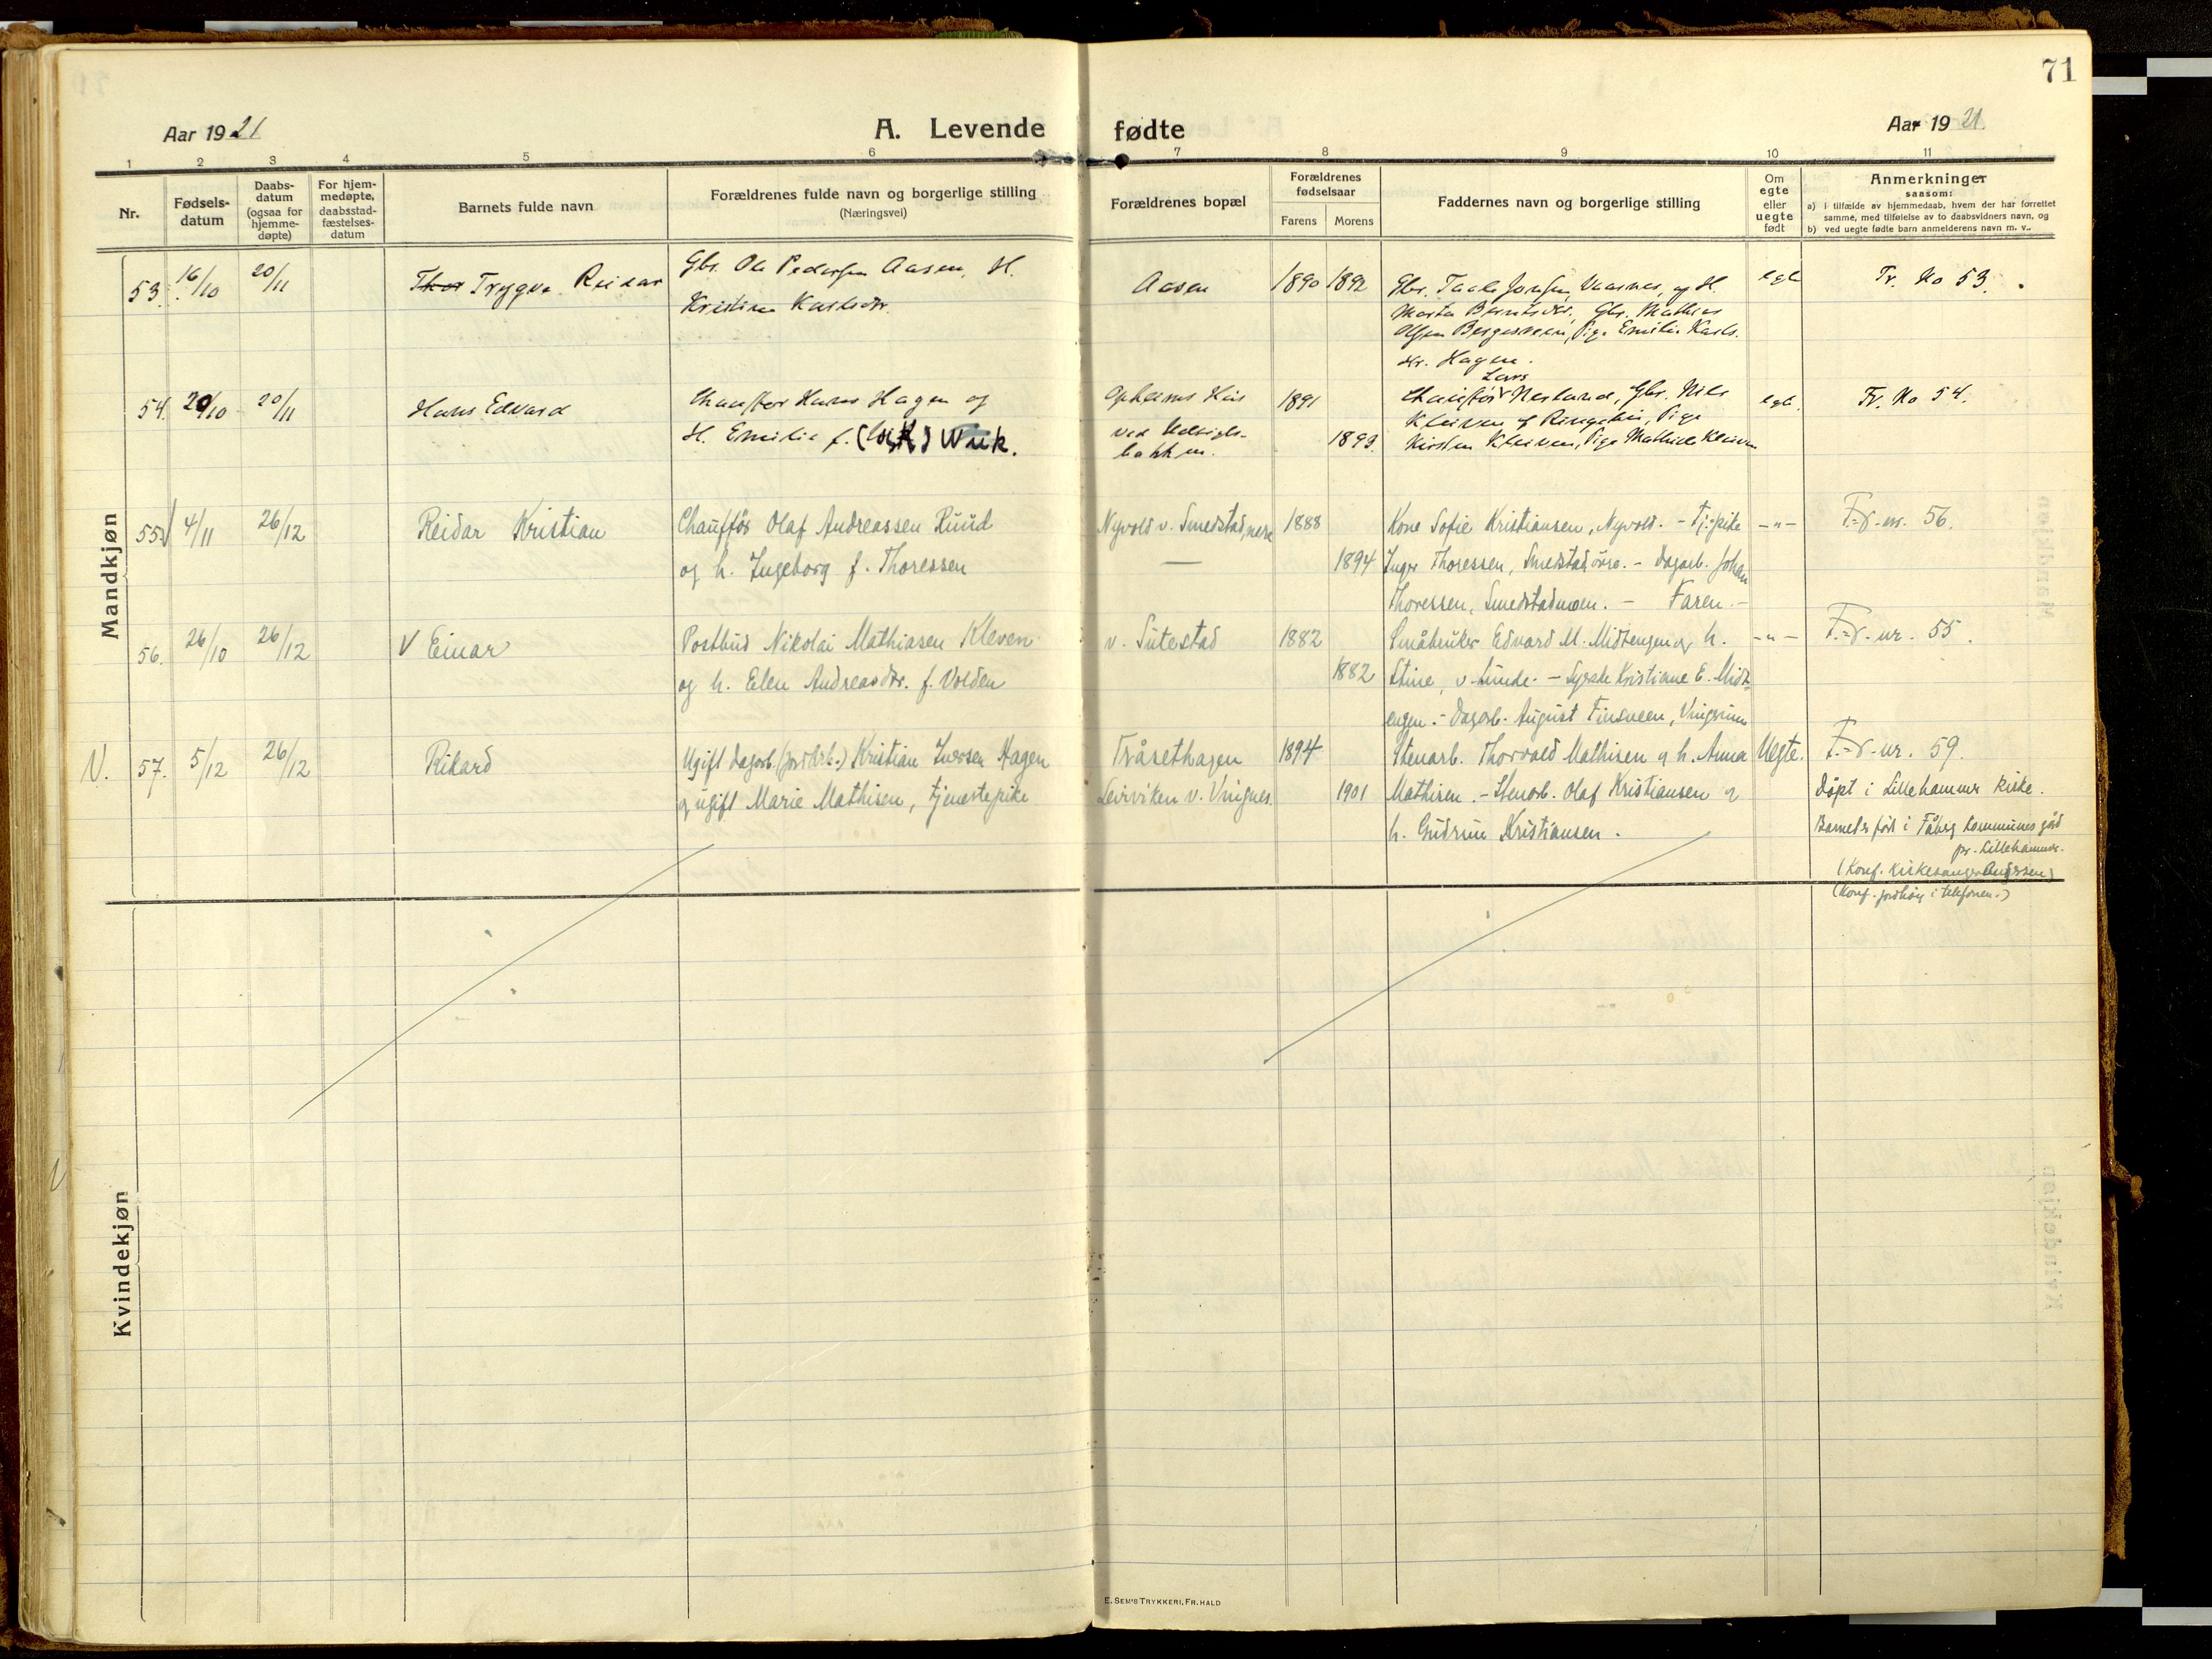 71
Aar 1921
A. Levende fødte
Aar 1921.
1 2 3 4 5 6 7 8 9 10 11
Nr.
Fødsels-
datum
Daabs-
datum
(ogsaa for
hjemme-
døpte)
For hjem-
medøpte,
daabsstad-
fæstelses-
datum
Barnets fulde navn
Forældrenes fulde navn og borgerlige stilling
(Næringsvei)
Forældrenes bopæl
Forældrenes
fødselsaar
Farens Morens
Faddernes navn og borgerlige stilling
Om
egte
eller
uegte
født
Anmerkninger
saasom:
a) i tilfælde av hjemmedaab, hvem der har forrettet
samme, med tilføielse av to daabsvidners navn, og
b) ved uegte fødte barn anmelderens navn m. v..
Mandkjøn
53. 16/10 20/11 Thor Trygve Reidar
Gbr. Ole Pedersen Aasen, H.
Kristine Karlsdr.
Aasen 1890 1892
Gbr. Taale Jonsen, og H.
Marta Berntsdr., Gbr. Mathias
Olsen Bergesveen, Pige Emilie Karls.
dr. Hagen.
egte Fr. No 53.
54. 20/10 20/11 Hans Edvard
Chauffør Hans Hagen og
H. Emilie f. Wiik.
Opheims Hus
ved
bakken.
1891
1893.
Lars
Chauffør Nesland, Gbr. Nils
Kleiven af Ringebu, Pige
Kirsten Kleiven, Pige Mathilde Kleiven
egte. Fr. No 54.
55 4/11 26/12 Reidar Kristian
Chauffør Olaf Andreassen Ruud
og h. Ingeborg f. Thoressen
Nyvold v. Smedstad, nere
—
1888
1894
Kone Sofie Kristiansen, Nyvold. - Tj.pike
Inger Thoressen, Smedstad øvre. - Dagarb. Johan
Thoressen, Smedstadmoen. - Faren. -
-"- F.-r.-nr. 56.
56. 26/10 26/12 V Einar
Postbud Nikolai Mathiasen Kleven
og h. Elen Andreasdtr. f. Volden
v. Sutestad 1882
1882
Småbruker Edvard M. Midtengen og h.
Stine, v. Lunde. - Syerske Kristiane E. Midt-
engen. - Dagarb. August Finsveen, Vingrom
-"- F.-r.-nr. 55.
V. 57. 5/12 26/12 Rikard
Ugift dagarb. (jordarb.) Kristian Iversen Hagen
og ugift Marie Mathisen, tjenestepike
Tråsethagen
Leirviken v. Vingnes.
1894
1901
Stenarb. Thorvald Mathisen og h. Anna
Mathisen. - Stenarb. Olaf Kristiansen og
h. Gudrun Kristiansen.
Uegte.
F.-r.-nr. 59.
Døpt i Lillehammer kirke.
Barnet er født i Fåberg kommunes gård
pr. Lillehammer.
(Konf. kirkesanger Andersen)
(Konf. jordmor i telefonen.)
Kvindekjøn
E. SEM'S TRYKKERI, FR.HALD